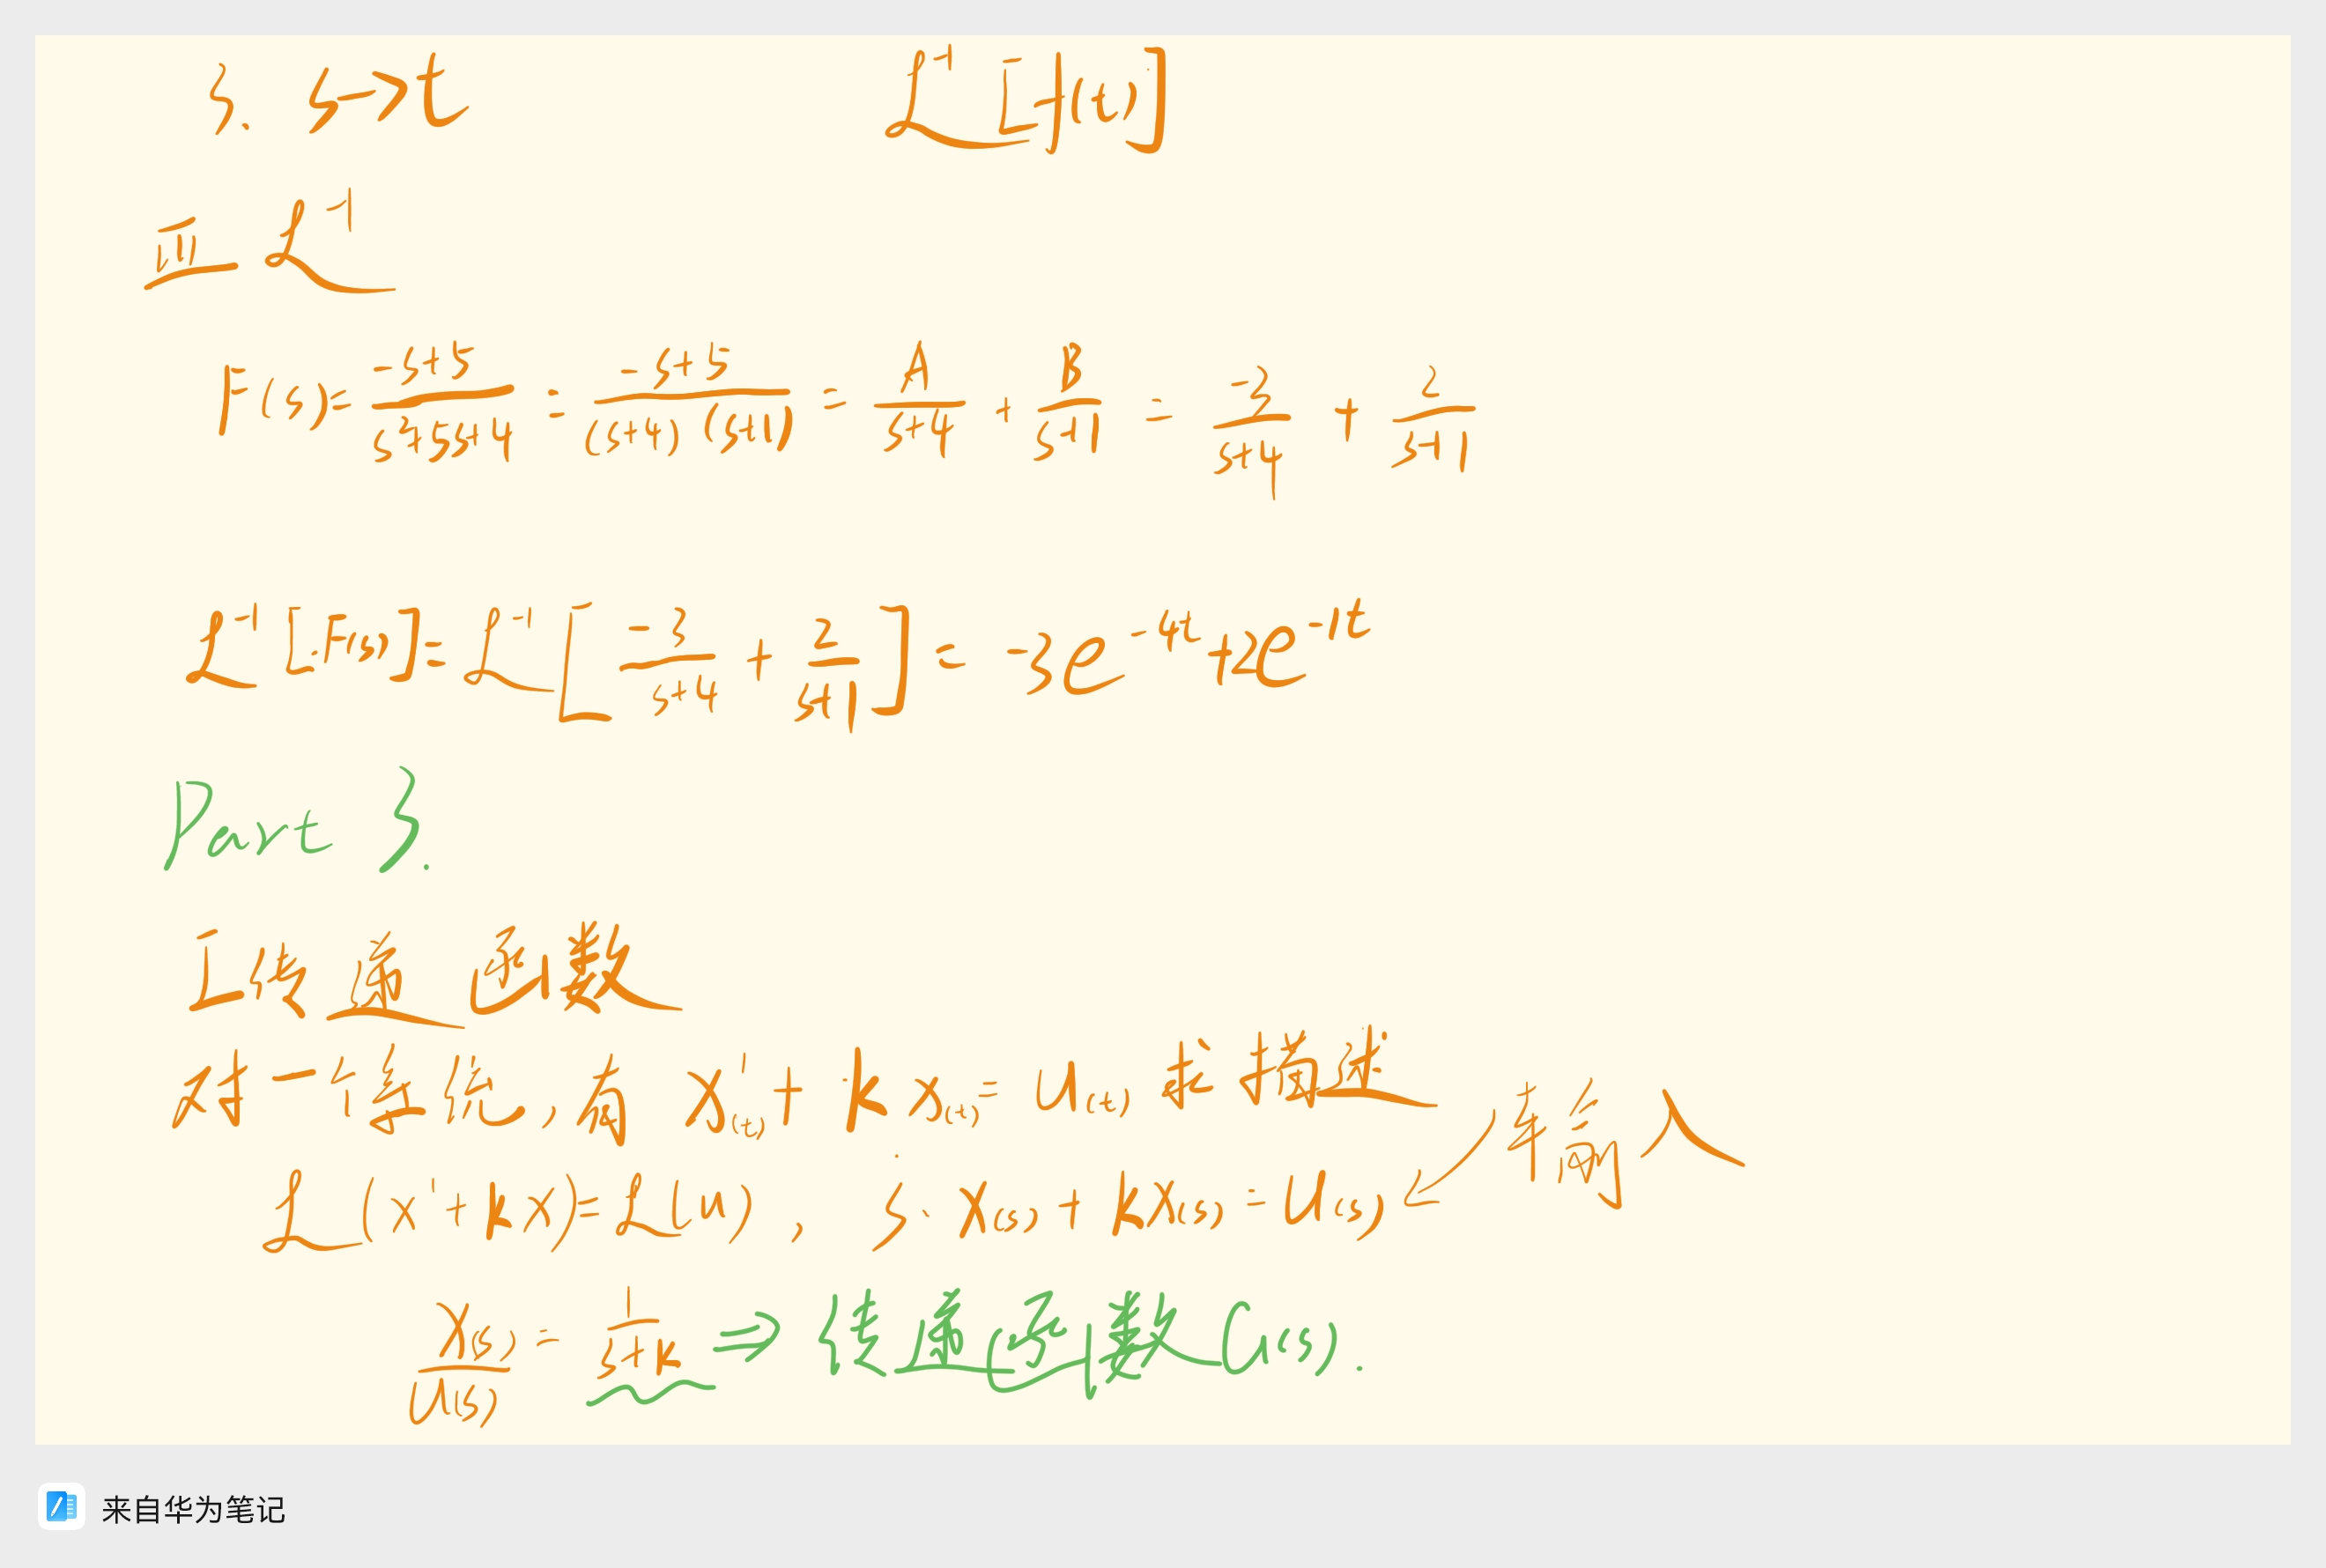 3. s→t    ℒ⁻¹[f(t)]
Ⅲ ℒ⁻¹
F(s) = (-s+5)/(s²+5s+4) = (-s+5)/((s+4)(s+1)) = A/(s+4) + B/(s+1) = -3/(s+4) + 2/(s+1)
ℒ⁻¹[F(s)] = ℒ⁻¹[-3/(s+4) + 2/(s+1)] = -3e^(-4t) + 2e^(-1t)
Part 3.
I 传递函数
对一个系统,有 x'(t) + kx(t) = u(t), 求传递式
输入
ℒ(x'+kx) = ℒ(u), s·X(s) + kX(s) = U(s)
X(s)/U(s) = 1/(s+k) ⇒ 传递函数G(s).
来自华为笔记